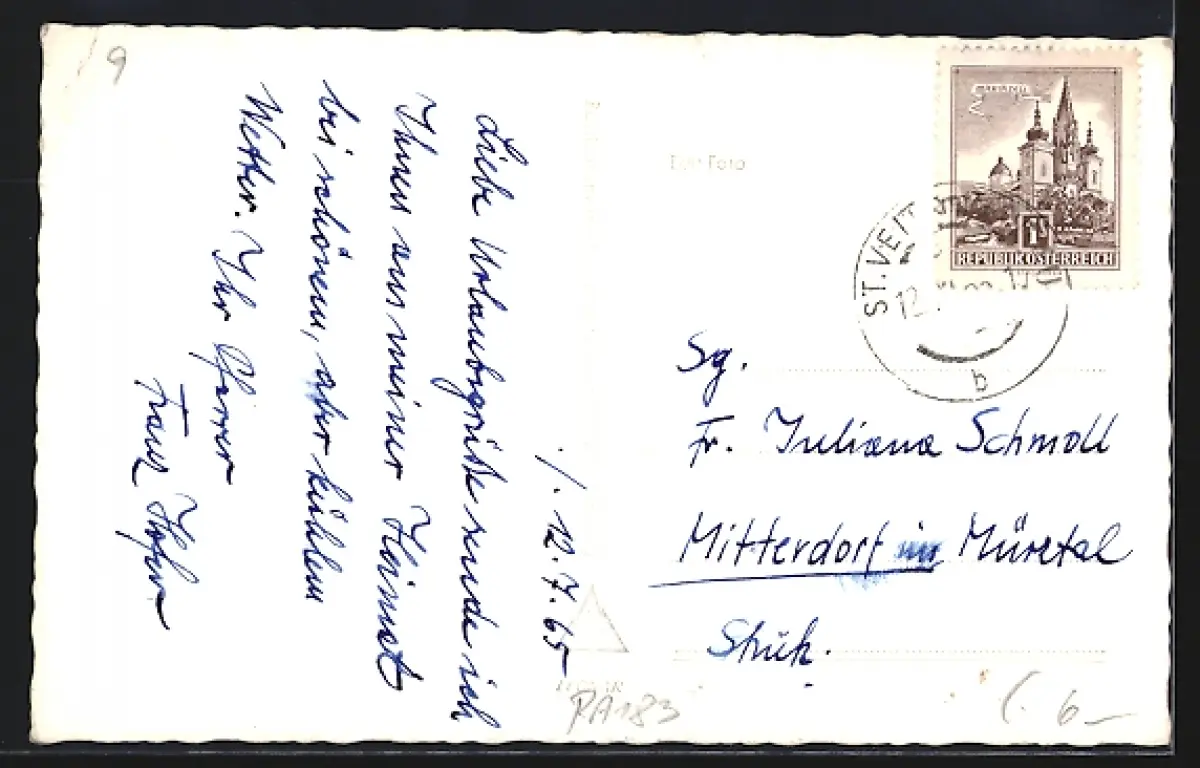 9
./. 12.7.65
Liebe Urlaubsgrüße sende ich
Ihnen aus meiner Heimat
bei schönem, aber kühlem
Wetter. Ihr Pfarrer
Franz
Echt Foto
REPUBLIK ÖSTERREICH
ST. VEIT
12.
b
Sg.
Fr. Juliana Schmoll
Mitterdorf im Mürztal
Stmk.
RA183
6-